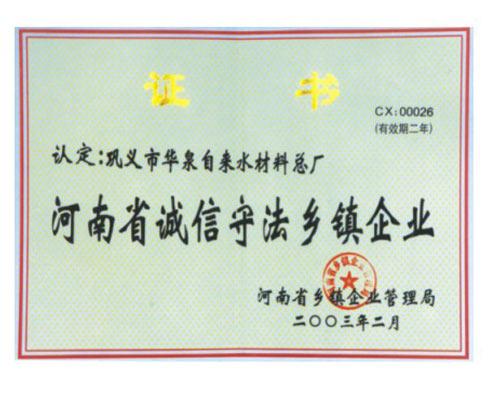 证 书
CX:00026
(有效期二年)
认定:巩义市华泉自来水材料总厂
河南省诚信守法乡镇企业
河南省乡镇企业管理局
二〇〇三年二月